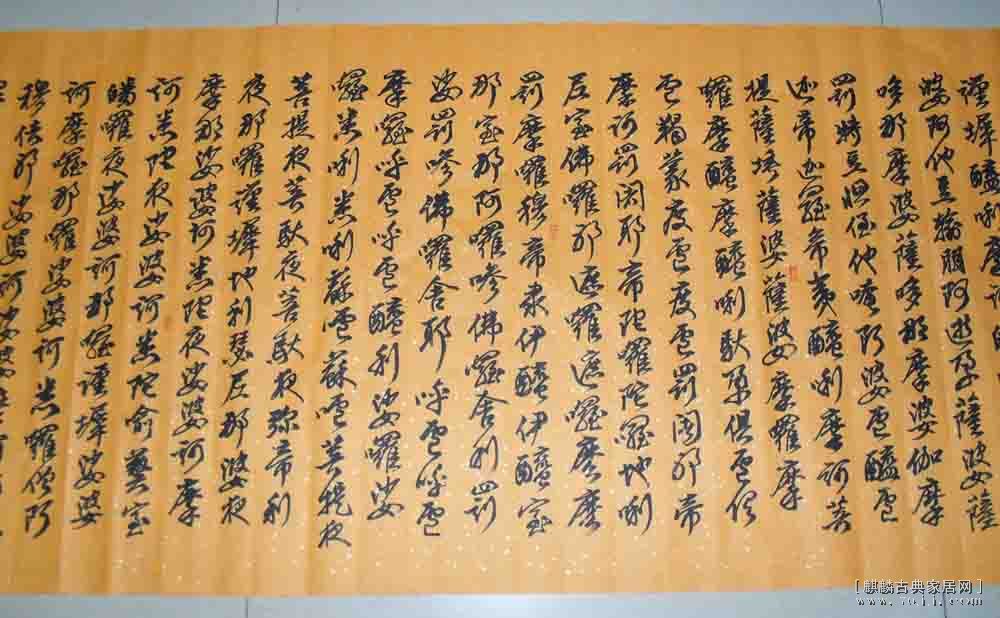 謹墀醯唎摩訶
婆阿他豆輸朋阿逝孕薩婆薩
哆那摩婆薩哆那摩婆伽摩
罰特豆怛侄他唵阿婆盧醯盧
迦帝迦囉帝夷醯唎摩訶菩
提薩埵薩婆薩婆摩囉摩
囉摩醯摩醯唎馱孕俱盧俱
盧羯蒙度盧度盧罰闍耶帝
摩訶罰闍耶帝陀囉陀囉地唎
尼室佛囉耶遮囉遮囉麼麼
罰摩囉穆帝隸伊醯伊醯室
那室那阿囉嘇佛囉舍利罰
娑罰嘇佛囉舍耶呼盧呼盧
摩囉呼盧呼盧醯利娑囉娑
囉悉唎悉唎蘇嚧蘇嚧菩提夜
菩提夜菩馱夜菩馱夜彌帝利
夜那囉謹墀地利瑟尼那婆夜
摩那娑婆訶悉陀夜娑婆訶摩
訶悉陀夜娑婆訶悉陀喻藝室
皤囉夜娑婆訶那囉謹墀娑婆
訶摩囉那囉娑婆訶悉囉僧阿
穆佉耶娑婆訶娑婆
[麒麟古典家居网]